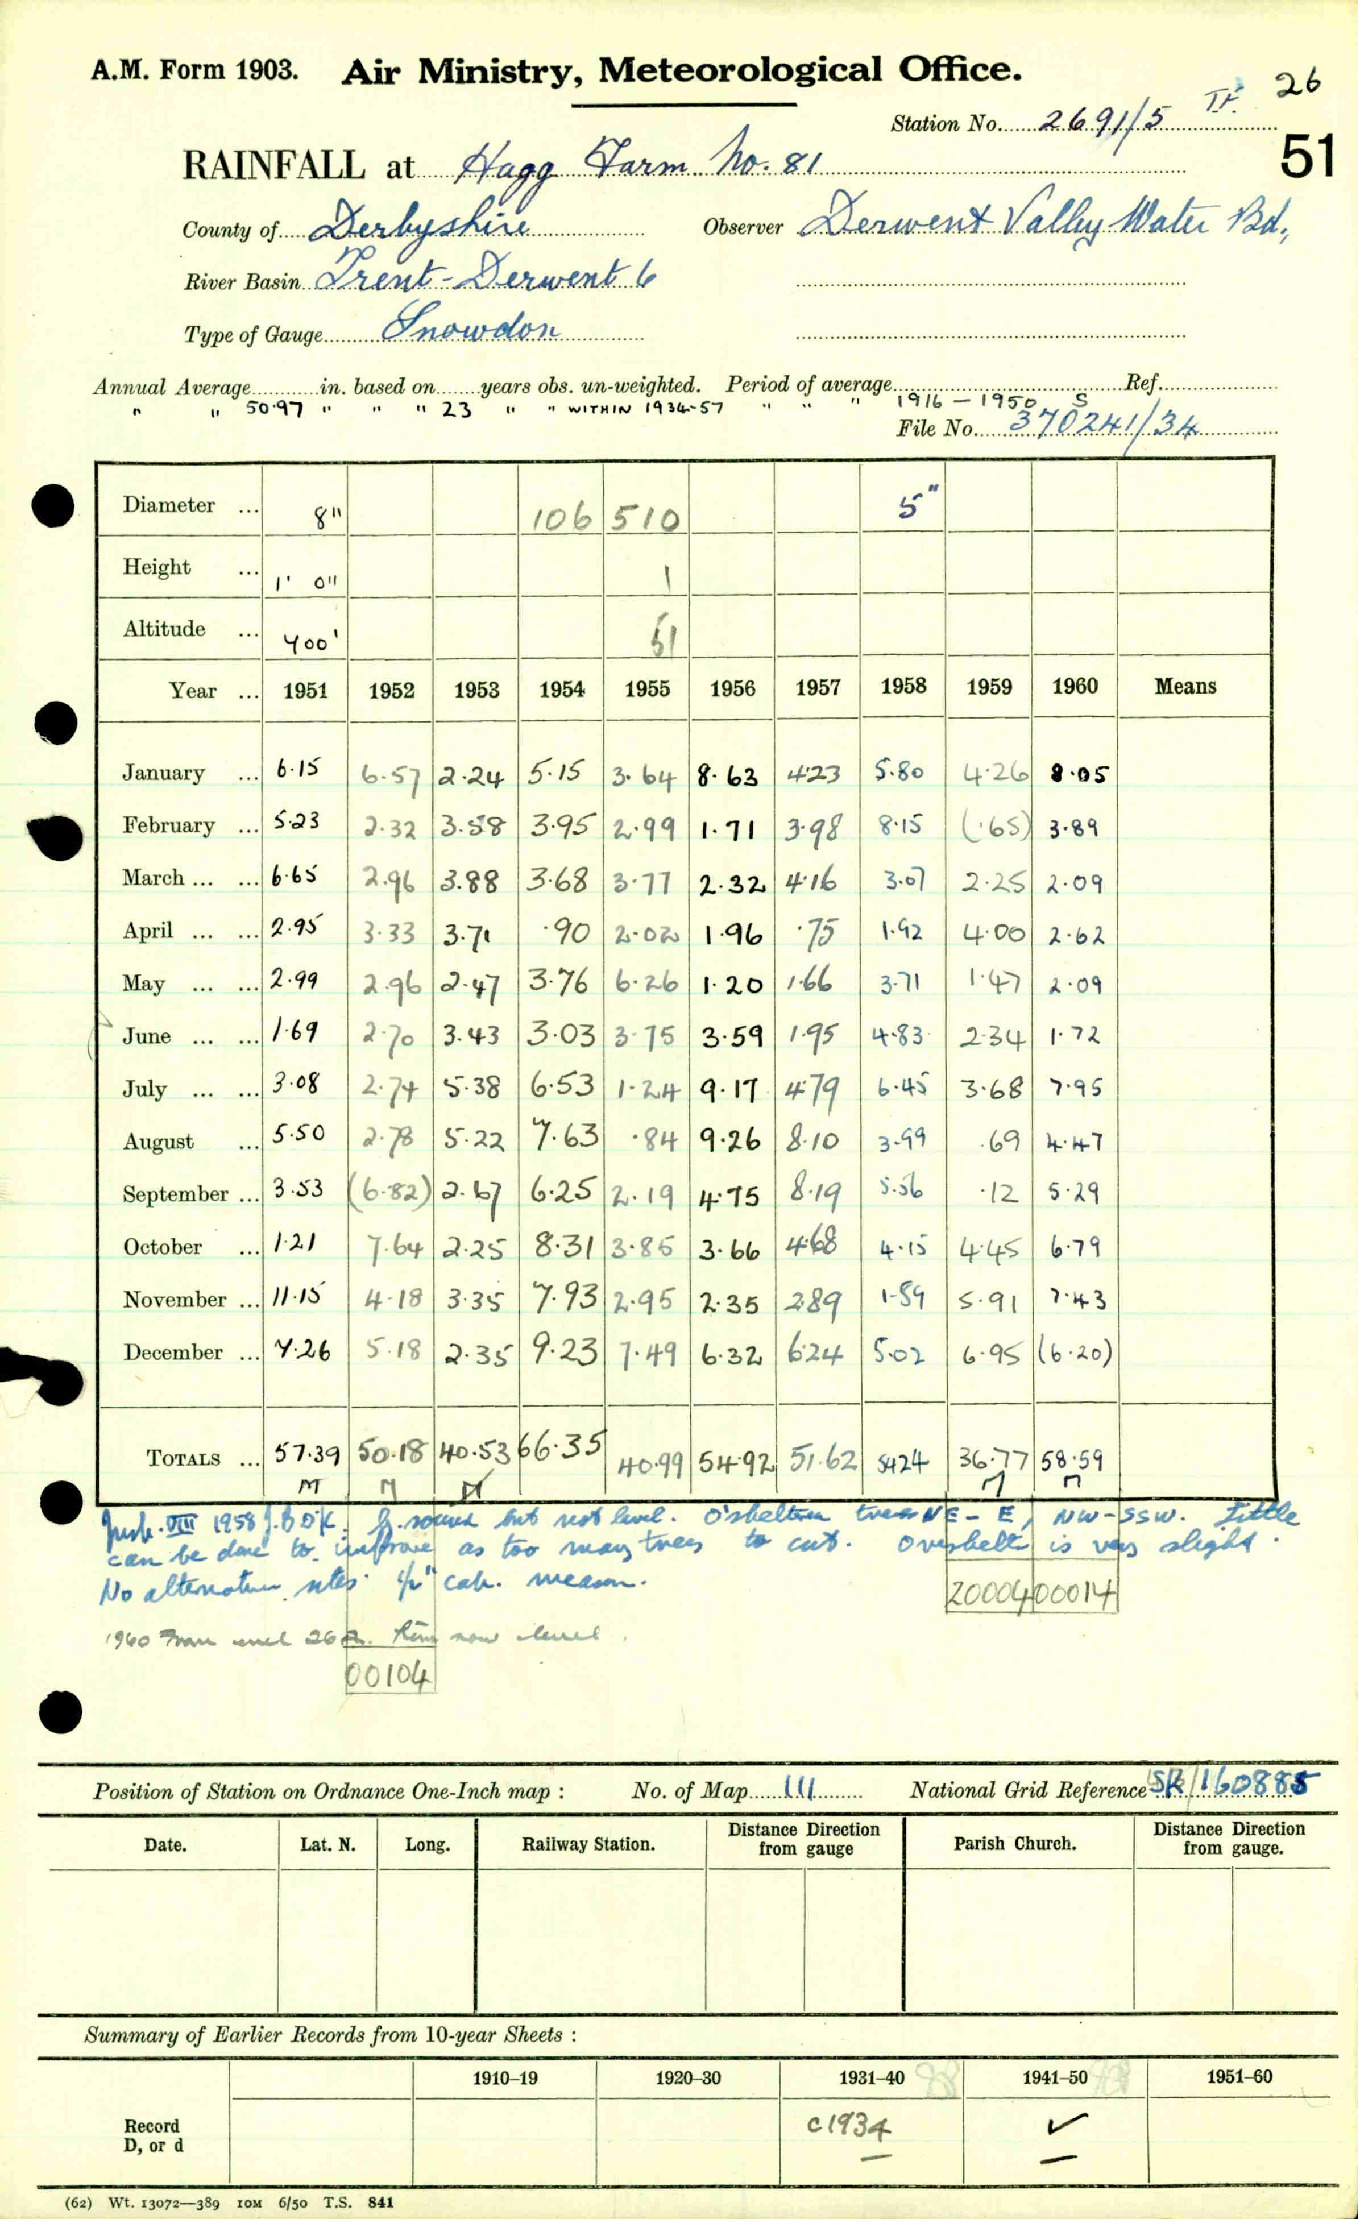 A.M. Form 1903. Air Ministry, Meteorological Office. 26
Station No. 2691/5 51
RAINFALL at Hagg Farm No. 81
County of Derbyshire Observer Derwent Valley Water Bd,
River Basin Trent-Derwent 6
Type of Gauge Snowdon
Annual Average in. based on years obs. un-weighted. Period of average Ref.
" " 50.97 " " " 23 " " WITHIN 1934-57 " " " 1916-1950 S
File No. 370241/34
Diameter ... 8" 106 510 5"
Height ... 1' 0" 1
Altitude ... 700' 51
Year ... 1951 1952 1953 1954 1955 1956 1957 1958 1959 1960 Means
January ... 6.15 6.57 2.24 5.15 3.64 8.63 4.23 5.80 4.26 8.05
February ... 5.23 2.32 3.58 3.95 2.99 1.71 3.98 8.15 (.65) 3.89
March ... ... 6.65 2.96 3.88 3.68 3.77 2.32 4.16 3.07 2.25 2.09
April ... ... 2.95 3.33 3.71 .90 2.02 1.96 .75 1.92 4.00 2.62
May ... ... 2.99 2.96 2.47 3.76 6.26 1.20 1.66 3.71 1.47 2.09
June ... ... 1.69 2.70 3.43 3.03 3.75 3.59 1.95 4.83 2.34 1.72
July ... ... 3.08 2.74 5.38 6.53 1.24 9.17 4.79 6.45 3.68 7.95
August ... 5.50 2.78 5.22 7.63 .84 9.26 8.10 3.99 .69 4.47
September ... 3.53 (6.82) 2.67 6.25 2.19 4.75 8.19 5.56 .12 5.29
October ... 1.21 7.64 2.25 8.31 3.85 3.66 4.68 4.15 4.45 6.79
November ... 11.15 4.18 3.35 7.93 2.95 2.35 2.89 1.59 5.91 7.43
December ... 7.26 5.18 2.35 9.23 7.49 6.32 6.24 5.02 6.95 (6.20)
TOTALS ... 57.39 50.18 40.53 66.35 40.99 54.92 51.62 54.24 36.77 58.59
M M M M M
Insp. VIII 1958 J.B O'K. G. sound but not level. O'shelter trees NE - E, NW - SSW. Little
can be done to improve as too many trees to cut. Overshelt is very slight.
No alternative sites. 1/2" cap. measure.
2000400014
1960 From 26 now level.
00104
Position of Station on Ordnance One-Inch map : No. of Map 111 National Grid Reference SK/160885
Date. Lat. N. Long. Railway Station. Distance from Direction gauge Parish Church. Distance from Direction gauge.
Summary of Earlier Records from 10-year Sheets :
1910–19 1920–30 1931–40 1941–50 1951–60
Record D, or d c1934 ✓
(62) Wt. 13072—389 10M 6/50 T.S. 841